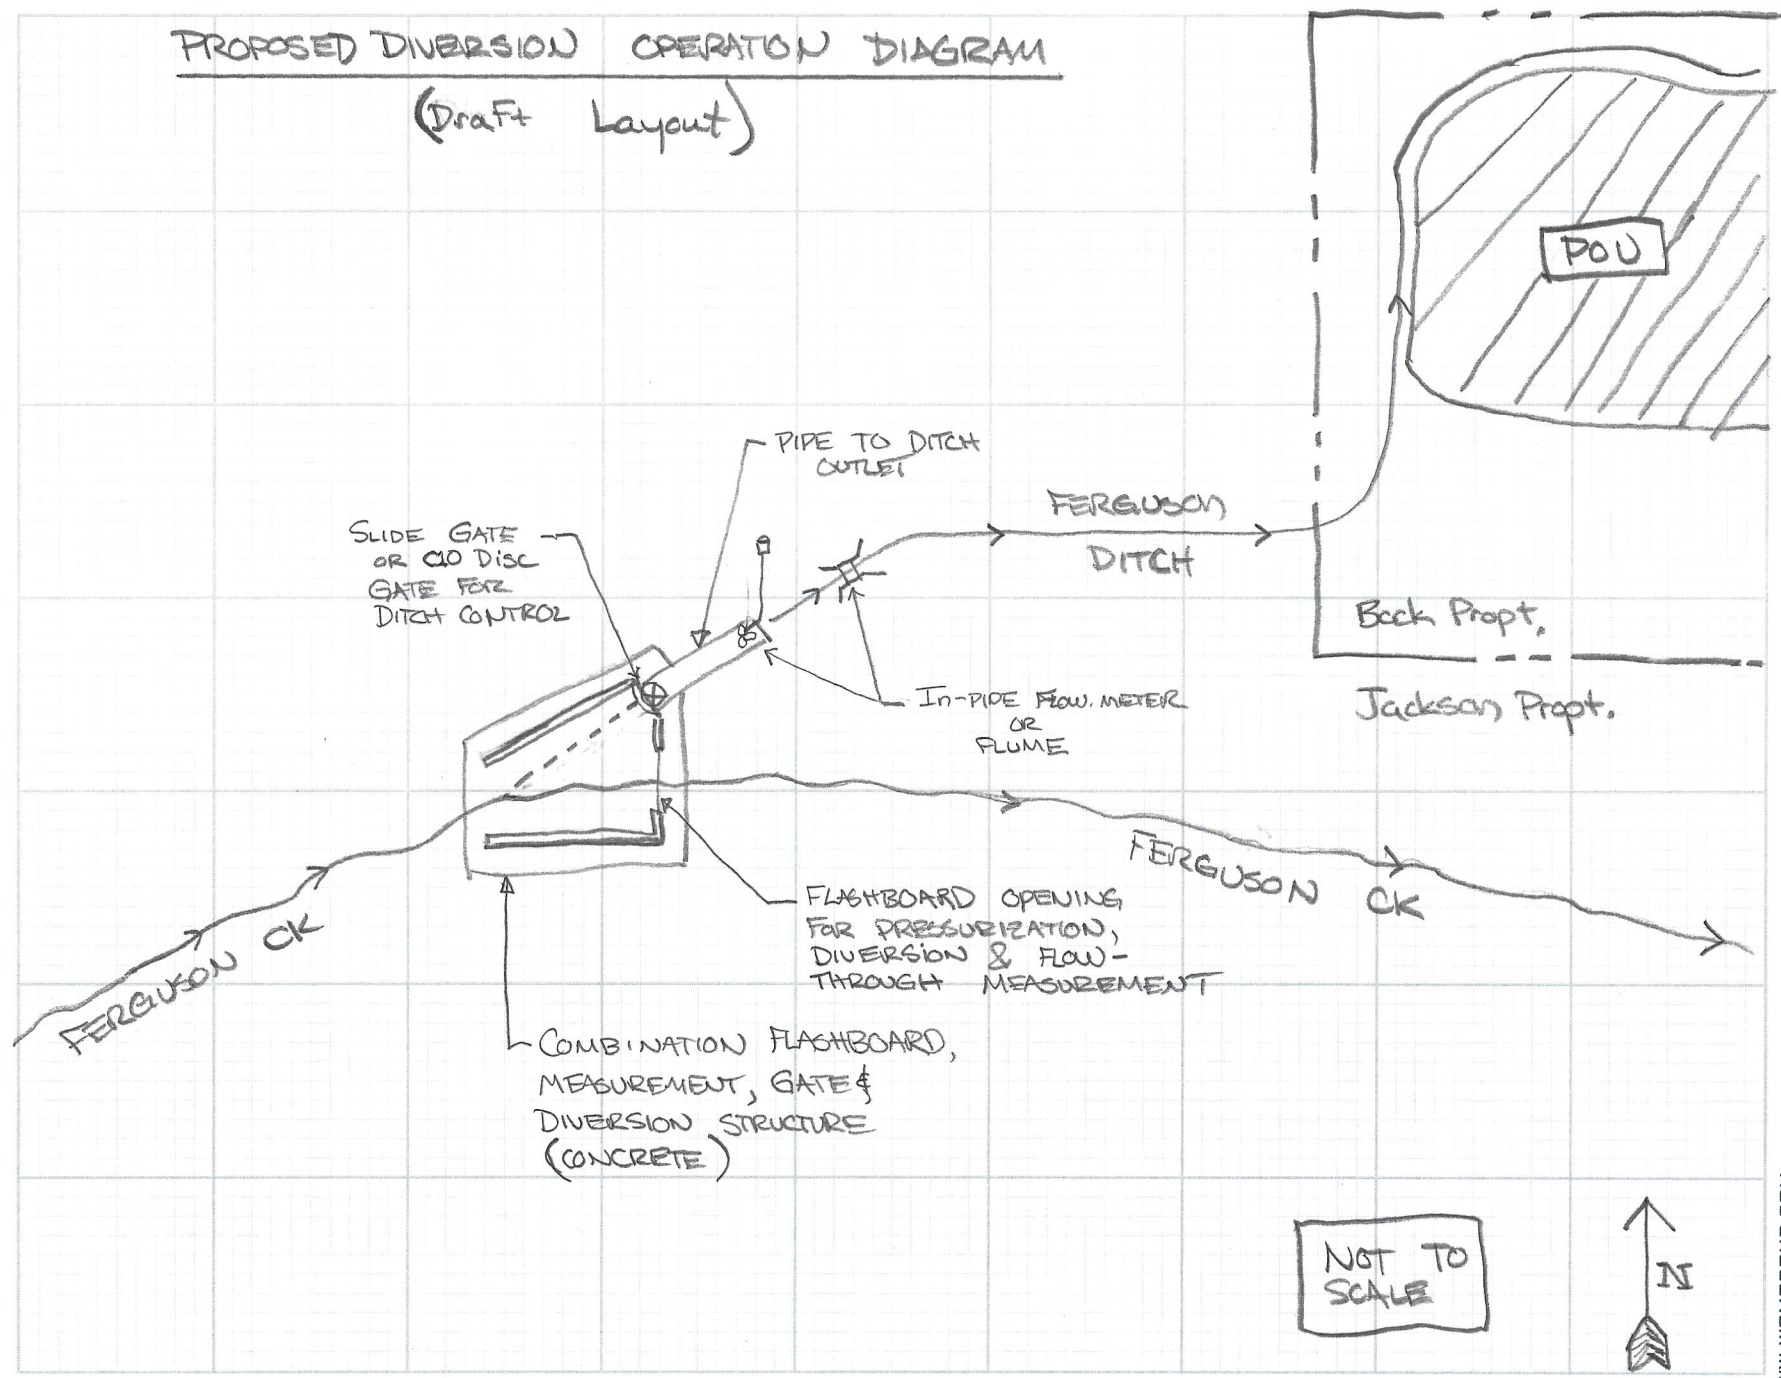 PROPOSED DIVERSION OPERATION DIAGRAM
(Draft Layout)
POU
PIPE TO DITCH
OUTLET
SLIDE GATE
OR C10 DISC
GATE FOR
DITCH CONTROL
FERGUSON
DITCH
Bock Propt.
Jackson Propt.
In-PIPE FLOW. METER
OR
FLUME
FERGUSON CK
FERGUSON CK
FLASHBOARD OPENING
FOR PRESSURIZATION,
DIVERSION & FLOW-
THROUGH MEASUREMENT
COMBINATION FLASHBOARD,
MEASUREMENT, GATE &
DIVERSION STRUCTURE
(CONCRETE)
NOT TO
SCALE
N